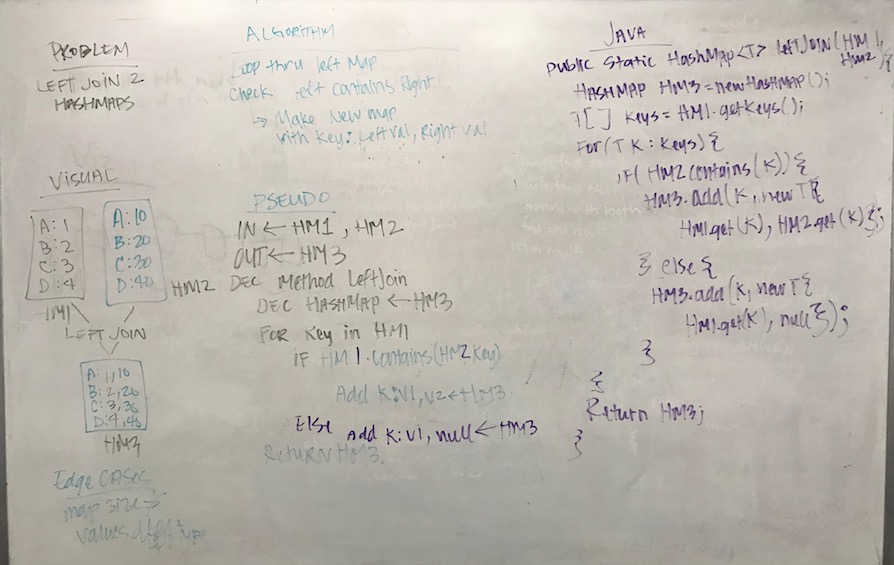 PROBLEM
LEFT JOIN 2
HASHMAPS
VISUAL
A: 1
B: 2
C: 3
D: 4
HM1
A: 10
B: 20
C: 30
D: 40
HM2
LEFT JOIN
A: 1, 10
B: 2, 20
C: 3, 30
D: 4, 40
HM3
Edge CASES
map size
values diff type
ALGORITHM
Loop thru left Map
Check left contains Right
↳ Make New map
with Key: Left val, Right val
PSEUDO
IN ← HM1, HM2
OUT ← HM3
DEC Method LeftJoin
DEC HASHMAP ← HM3
FOR Key in HM1
IF HM1.contains(HM2 Key)
Add K:V1, V2 ← HM3
Else Add K:V1, null ← HM3
RETURN HM3
JAVA
public static HashMap<T> leftJOIN(HM1,
HM2){
HASHMAP HM3 = new HASHMAP();
T[] Keys = HM1.getKeys();
For(T K : Keys){
IF( HM2 contains(K)){
HM3.add(K, new T{
HM1.get(K), HM2.get(K)};
} else {
HM3.add(K, new T{
HM1.get(K), null});
}
{
Return HM3;
}